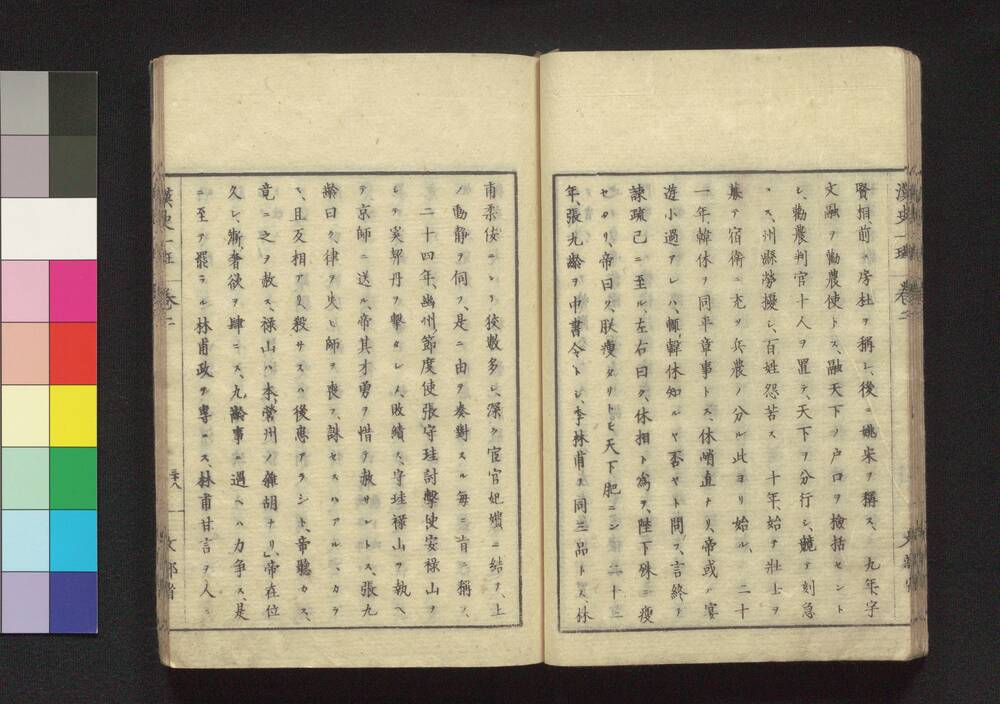 漢史一班 巻二 文部省
賢相前ニ房杜ヲ稱シ、後ニ姚宋ヲ稱ス、九年、宇
文融ヲ勸農使トス、融天下ノ戸口ヲ檢括セント
シ、勸農判官十人ヲ置テ、天下ヲ分行シ、競テ刻急
ス、州縣勞擾シ、百姓怨苦ス 十年、始テ壯士ヲ
募テ宿衞ニ充ツ、兵農ノ分ル此ヨリ始ル、 二十
一年、韓休ヲ同平章事トス、休峭直ナリ、帝或ハ宴
遊小過アレハ、輒韓休知ルヤ否ヤト問フ、言終テ
諫疏已ニ至ル、左右曰ク、休相ト爲テ、陛下殊ニ瘦
セタリ、帝曰ク、朕瘦タリトモ天下肥ニン 二十三
年、張九齡ヲ中書令トシ、李林甫ヲ同三品トス、林
甫柔佞ニシテ狡數多シ、深ク宦官妃嬪ニ結テ、上
ノ動靜ヲ伺フ、是ニ由テ奏對スル毎ニ旨ニ稱フ、
二十四年、幽州節度使張守珪討擊使安祿山ヲ
シテ奚契丹ヲ擊タシメ、敗績ス、守珪祿山ヲ執ヘ
テ、京師ニ送ル、帝其才勇ヲ惜テ赦サントス、張九
齡曰ク、律ヲ失ヒ師ヲ喪フ、誅セスハアルヘカラ
ス、且反相アリ、殺サスハ後患アラント、帝聽カス、
竟ニ之ヲ赦ス、祿山ハ本、營州ノ雜胡ナリ」帝在位
久シ、漸、奢欲ヲ肆ニス、九齡事ニ遇ヘハ力争ス、是
ニ至テ罷ラル、林甫政ヲ專ニス、林甫甘言ヲ人ニ
漢史一班 巻二 三十八 文部省